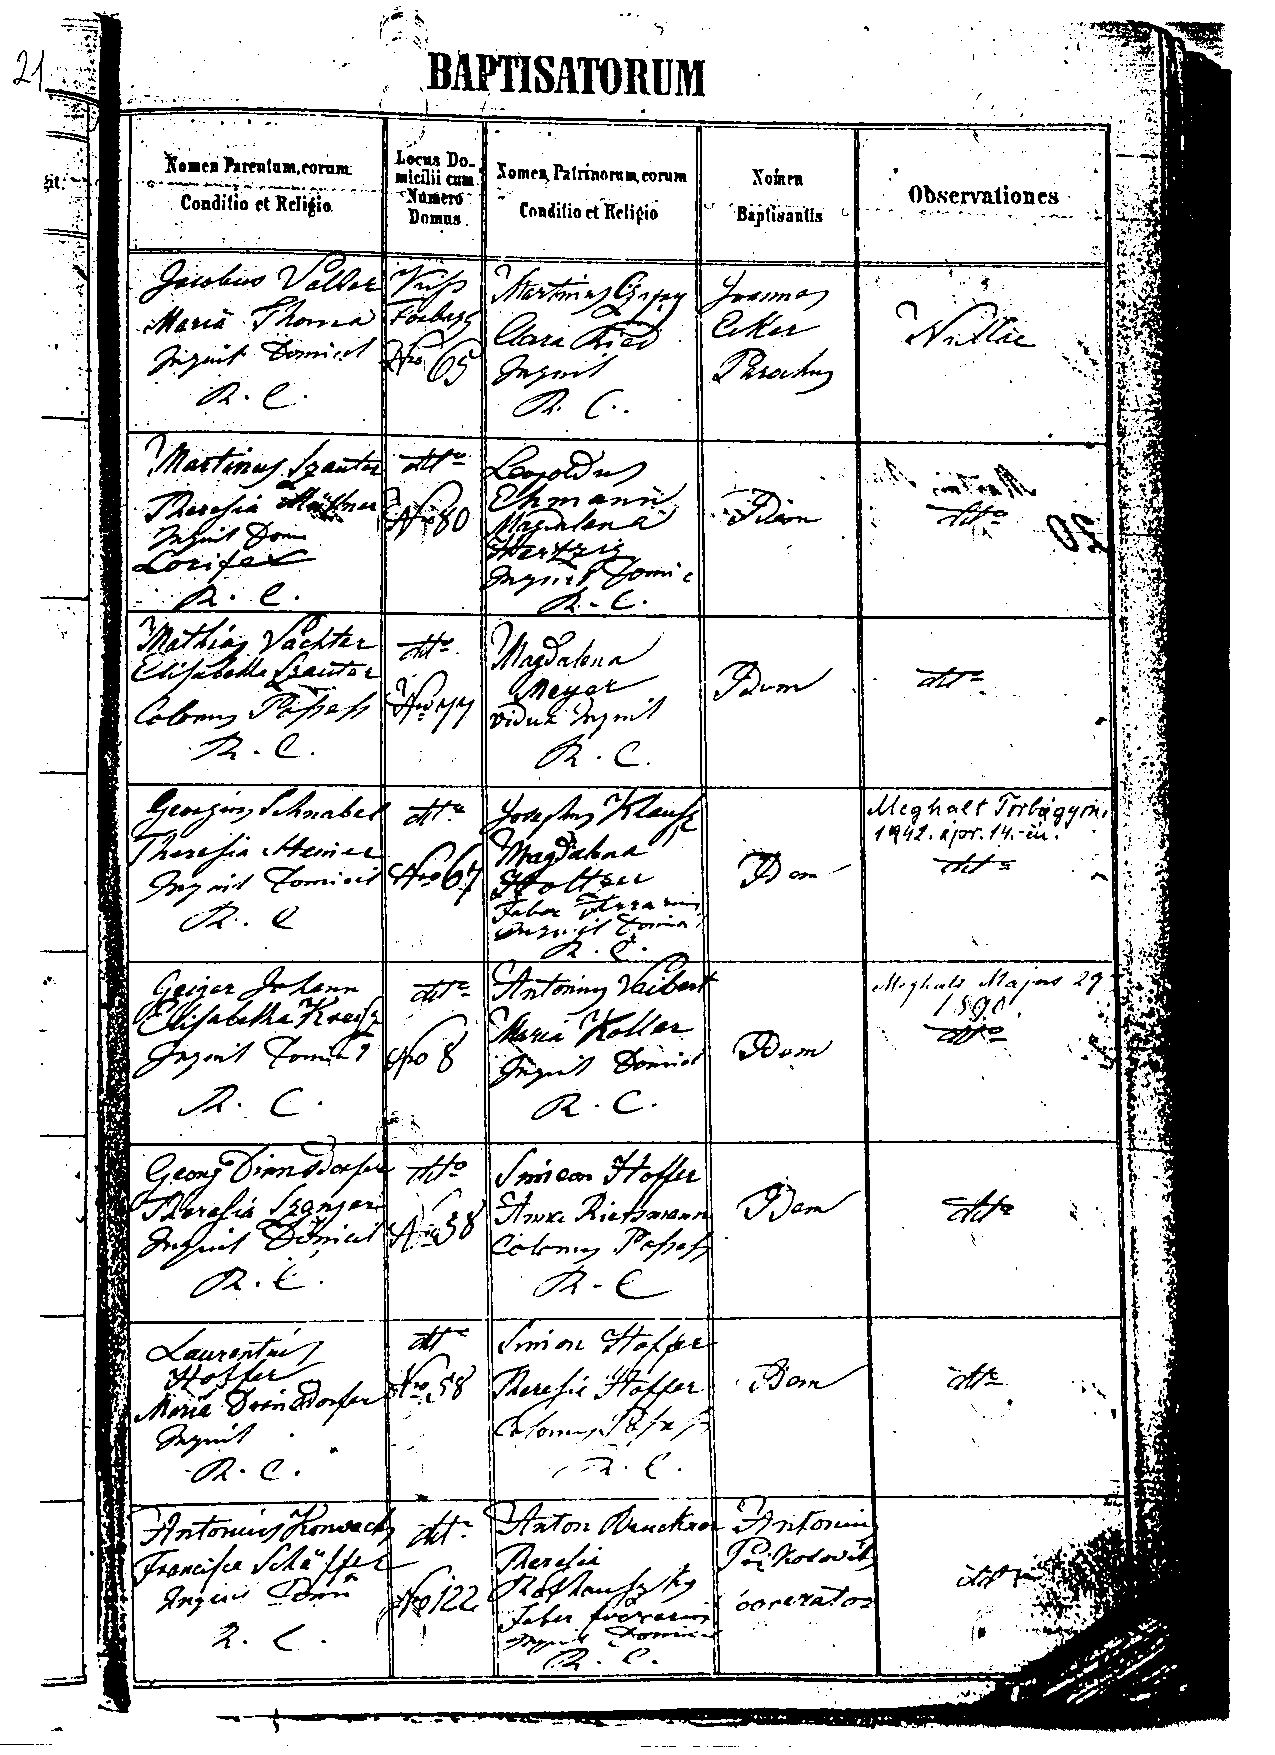 21
BAPTISATORUM
sit.
Nomen Parentum, eorum
Conditio et Religio
Locus Do-
micilii cum
Numero
Domus
Nomen Patrinorum, eorum
Conditio et Religio
Nomen
Baptisantis
Observationes
Jacobus
Maria Thoma
Inquil Domicil
R. C.
Nro 65
Martinus
Clara Ried
Inquil
R. C.
Joannes
Eker
Parochus
Nullae
Martinus Szauter
Theresia
Inquil Dom
R. C.
dtto
Nro 80
Leopoldus
Ehmann
Magdalena
Hertzig
Inquil Domic
R. C.
Idem
dtto
Mathias Vächter
Elisabetha Szauter
Colonus Possess
R. C.
dtto
Nro 77
Magdalena
Meyer
vidua Inquil
R. C.
Idem
dtto
Georgius Schnabel
Theresia
Inquil Domicil
R. C
dtto
Nro 67
Josephus Klausz
Magdalena
Holtzer
Faber
Inquil Domic
R. C.
Idem
Meghalt Torbágyon,
1942. ápr. 14.-én.
dtto
Geiger Johann
Elisabetha Kreisz
Inquil Domicil
R. C.
dtto
Nro 8
Antonius Veibert
Maria Koller
Inquil Domicil
R. C.
Idem
Meghalt Majus 29
1890.
dtto
Georg Diensdorfer
Theresia
Inquil Domicil
R. C.
dtto
Nro 58
Simeon Hoffer
Anna Rietzmann
Colonus Possess
R. C
Idem
dtto
Laurentius
Hoffer
Maria Diensdorfer
Inquil
R. C.
dtto
Nro 58
Simon Hoffer
Theresia Hoffer
Colonus Possess
R. C.
Idem
dtto
Antonius
Francisca Schäffer
Inquil Domi
R. C.
dtto
Nro 122
Anton Bruckner
Theresia
Faber
Inquil Domicil
R. C.
Antonius
cooperator
dtto